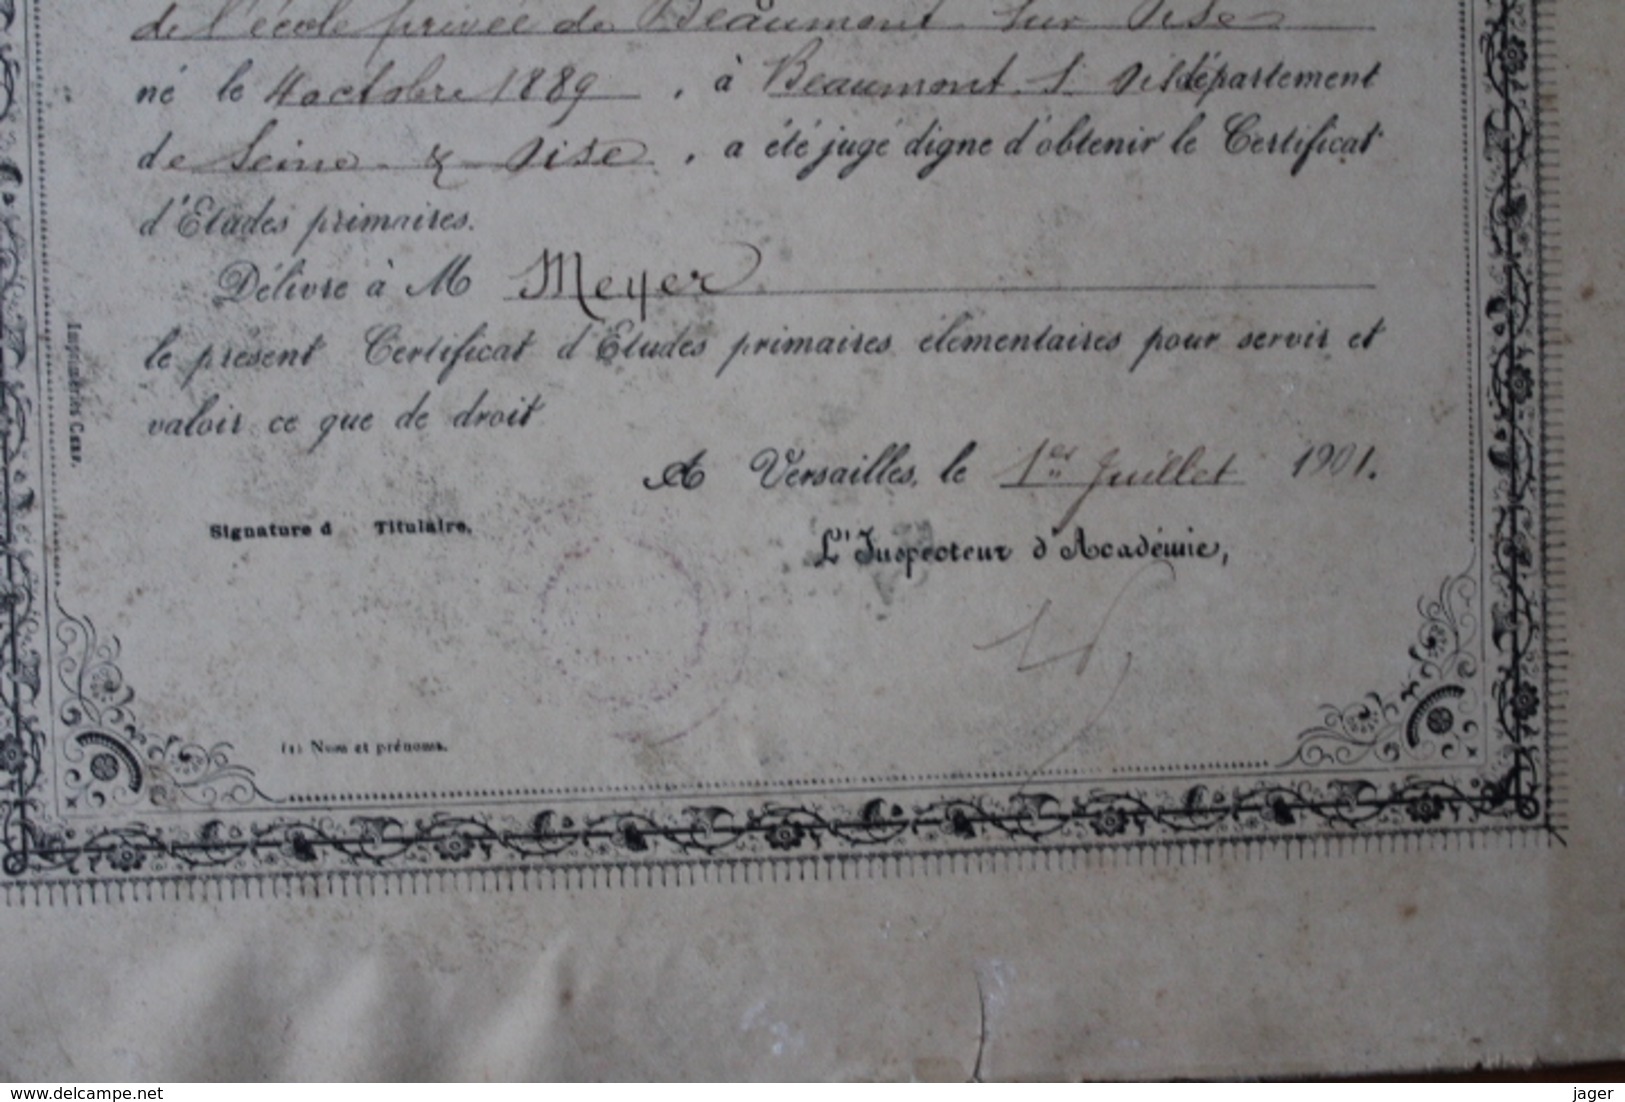 de l'école privée de Beaumont sur Oise
né le 4 octobre 1889, à Beaumont s/ Oise département
de Seine & Oise, a été jugé digne d'obtenir le Certificat
d'Etudes primaires.
Délivré à M Meyer
le présent Certificat d'Etudes primaires élémentaires pour servir et
valoir ce que de droit
A Versailles, le 1er Juillet 1901.
Signature d Titulaire.
L'Inspecteur d'Académie,
(1) Nom et prénoms.
Imprimeries Cerf.
www.delcampe.net
jager